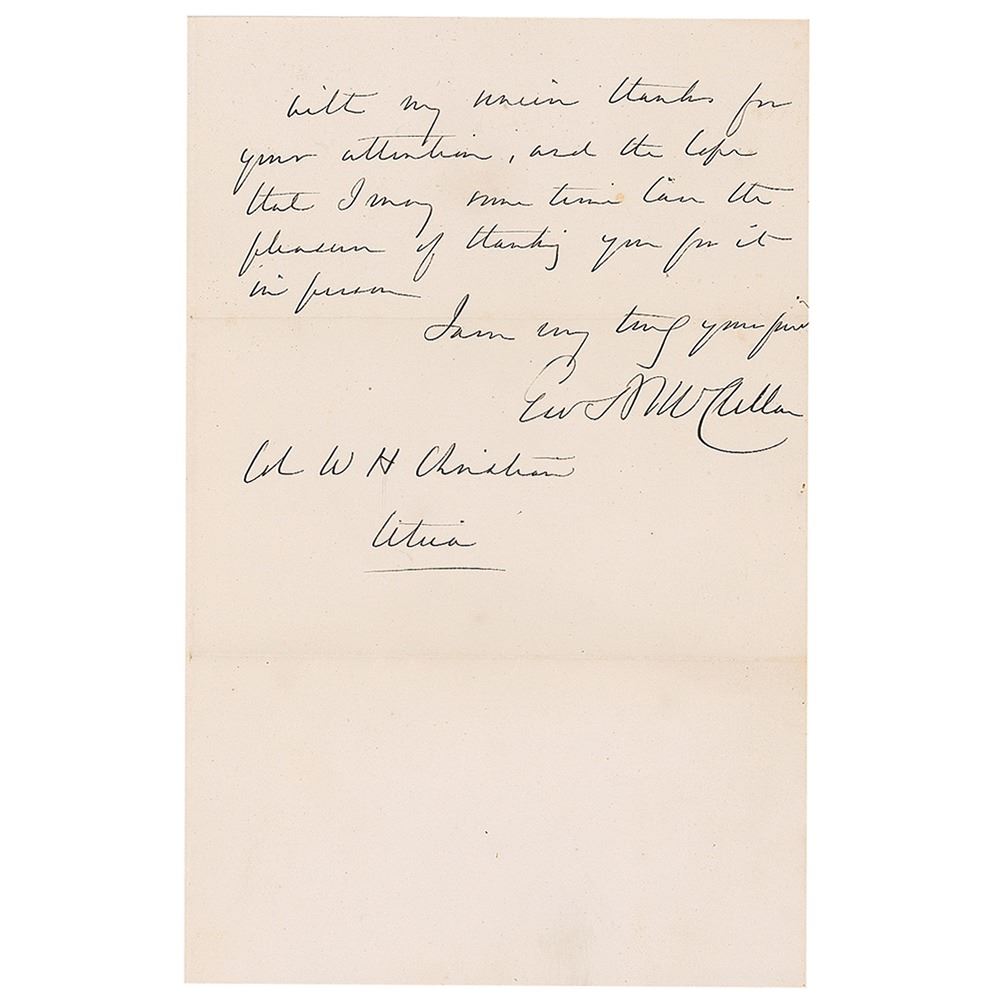 With my sincere thanks for
your attention, and the hope
that I may some time have the
pleasure of thanking you for it
in person
I am very truly your friend
Geo B McClellan
Col W H Christian
Utica